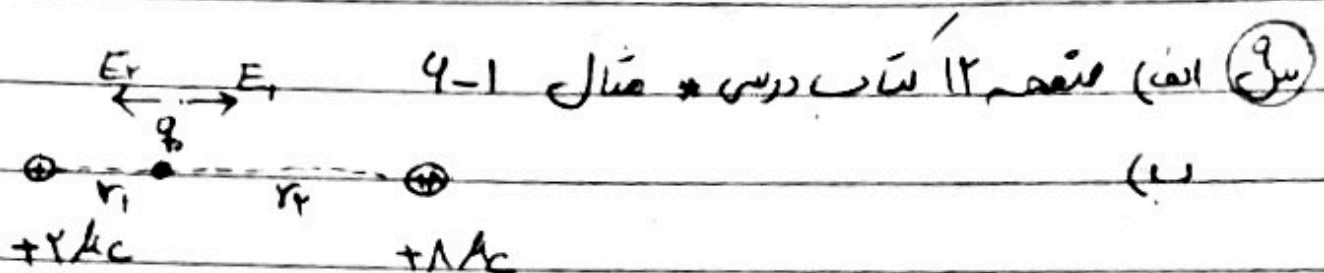 س۹ الف) صفحه ۱۲ کتاب درسی * مثال ۱-۶
ب)
E۲ E۱
q۰
+ r۱ r۲ ++
+۲μc +۸μc